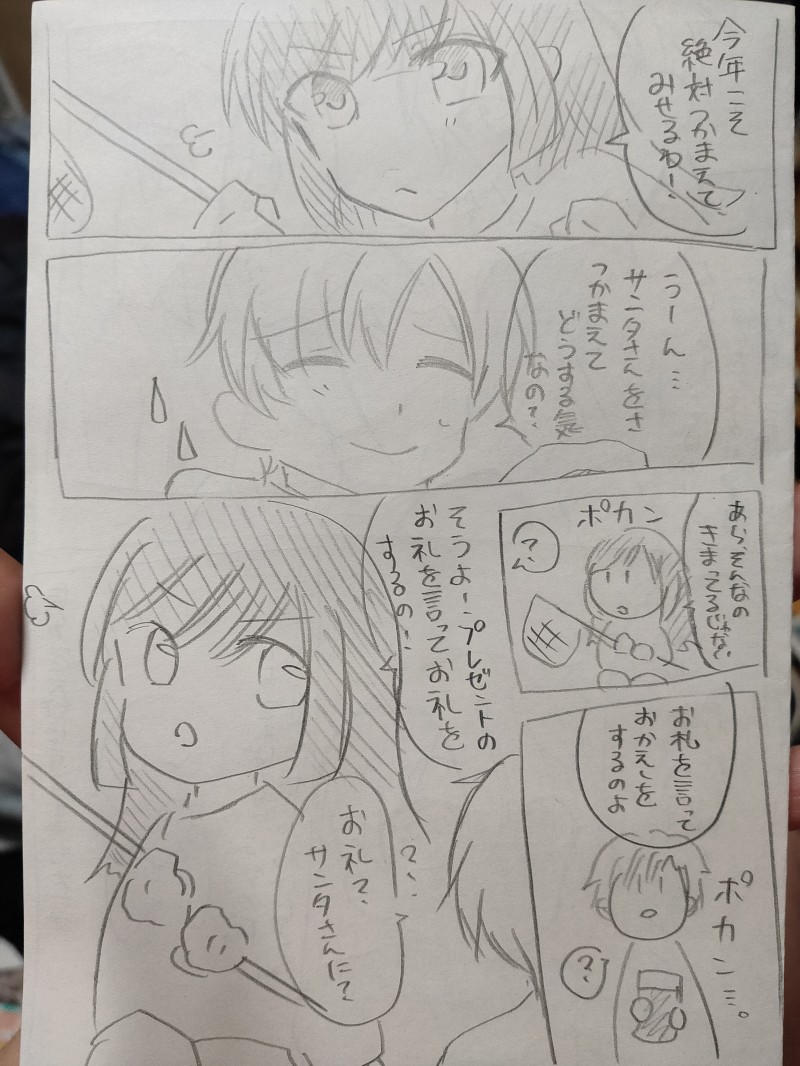 今年こそ
絶対つかまえて
みせるわ!
うーん…
サンタさんをさ
つかまえて
どうする気
なの?
あら、そんなの
きまってるじゃない
ポカン
?
お礼を言って
おかえしを
するのよ
ポカン…。
?
そうよ!プレゼントの
お礼を言ってお礼を
するの!
?
お礼て、
サンタさんに?